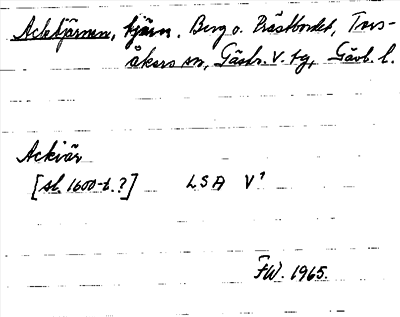 Acktjärnen, tjärn. Berg o. Prästbordet, Tors-
åkers sn, Gästr. V. tg, Gävb. l.
Ackiär
[sl. 1600-t.?] LSA V¹
FW. 1965.